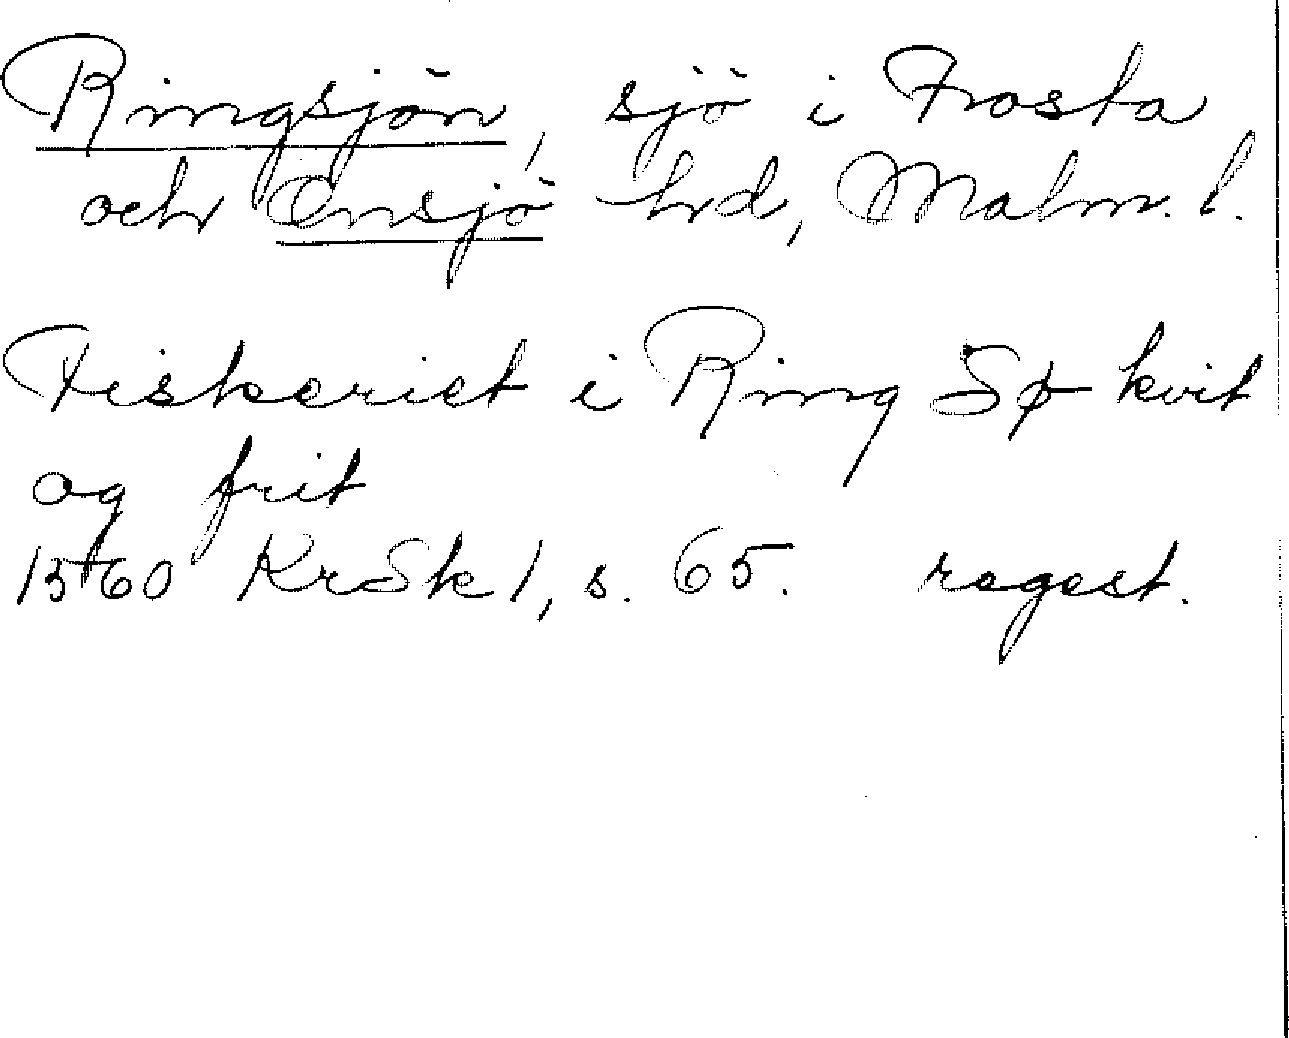 Ringsjön, sjö i Frosta
och Onsjö hrd, Malm. l.
Fiskeriet i Ring Sø kvit
og frit
1560 KrSk 1, s. 65. regest.